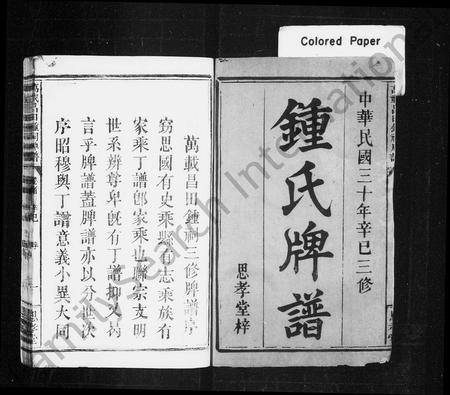 Colored Paper
中華民國三十年辛巳三修
鍾氏牌譜
思孝堂梓
萬載昌田鍾祠三修牌譜序
竊思國有史乘縣有志乘族有
家乘丁譜卽家乘也聯宗支明
世系辨尊卑旣有丁譜抑又
言乎牌譜蓋牌譜亦以分世次
序昭穆與丁譜意義小異大同
FamilySearch International